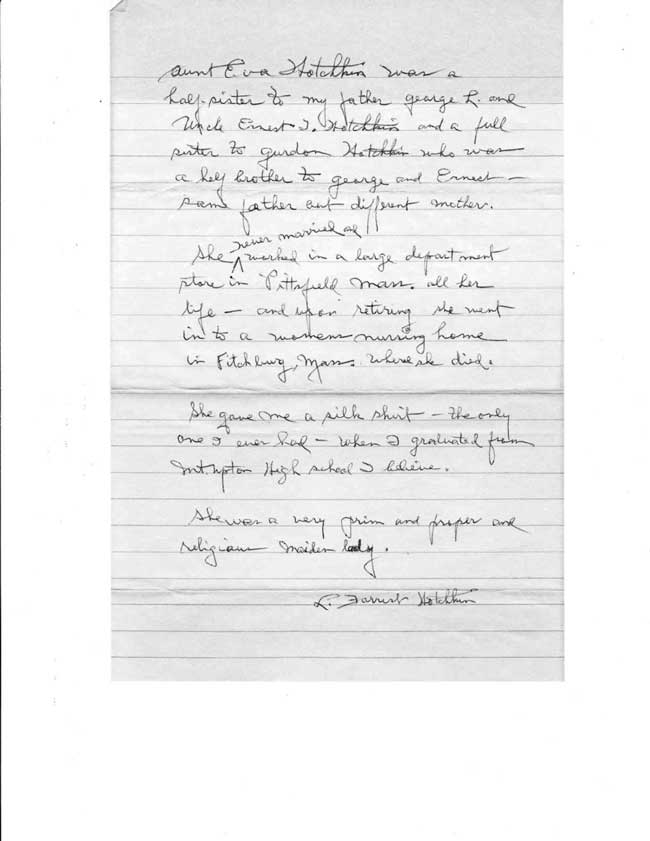 Aunt Eva Hotchkin was a
half-sister to my father George L. and
Uncle Ernest J. Hotchkin and a full
sister to Gurdon Hotchkin who was
a half brother to George and Ernest –
same father but different mother.
never married and
She worked in a large department
store in Pittsfield Mass. all her
life – and upon retiring she went
in to a womens nursing home
in Fitchburg, Mass. where she died.
She gave me a silk shirt – the only
one I ever had – when I graduated from
Mt. Upton High school I believe.
She was a very prim and proper and
religious maiden lady.
L. Forrest Hotchkin